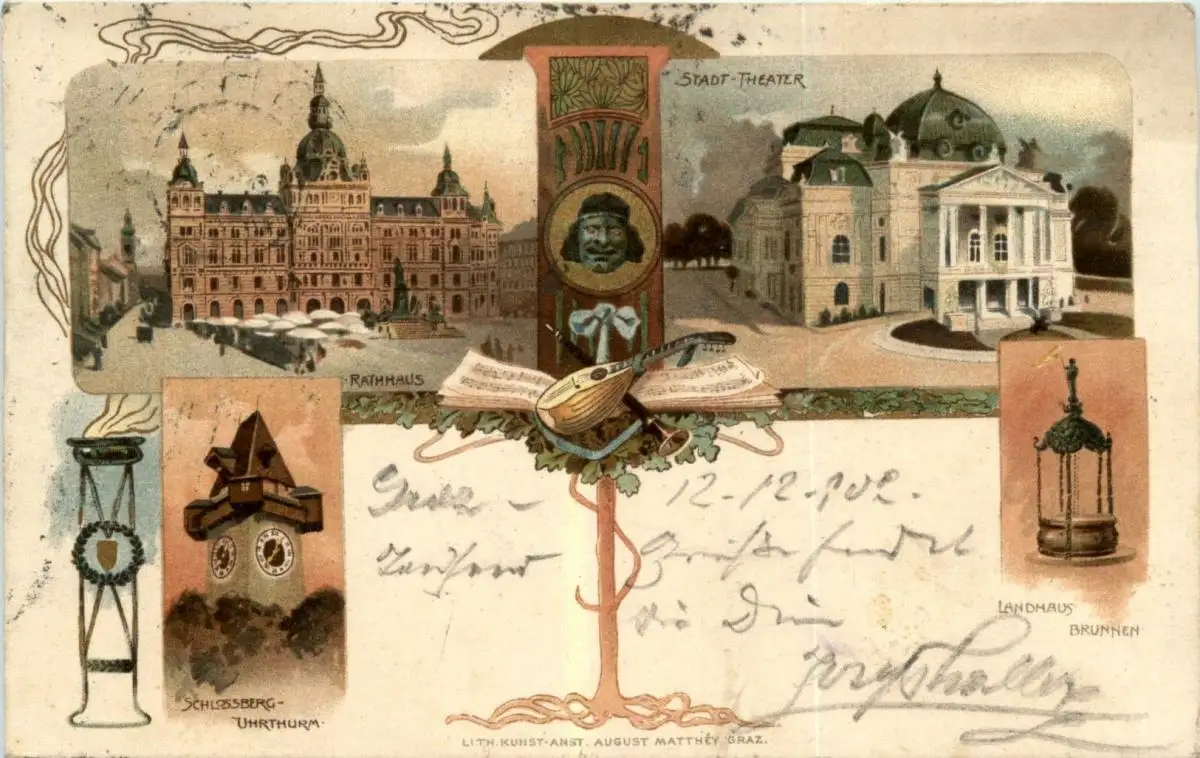 STADT-THEATER
RATHHAUS
Graz – 12-12-902.
Tausend Grüße sendet
dir Dein
LANDHAUS
BRUNNEN
SCHLOSSBERG-
UHRTHURM.
LITH. KUNST-ANST. AUGUST MATTHEY GRAZ.